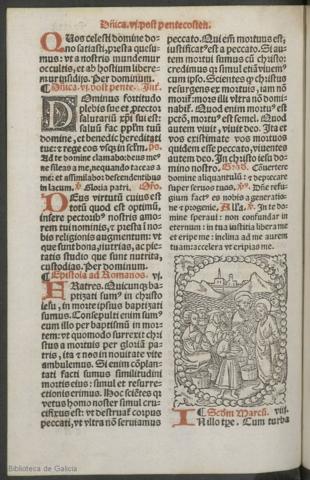 Dñica.vj.post pentecosten.
QUos celesti domine do-
no satiasti, presta quesu-
mus: vt a nostris mundemur
occultis, et ab hostium libere-
mur insidijs. Per dominum.
Dñica.vj.post pente. Int.
DOminus fortitudo
plebis sue et protector
salutariũ xp̃i sui est:
saluũ fac pp̃lm tuũ
domine, et benedic hereditati
tue: et rege eos vsqz in sc̃lm. ps.
Ad te domine clamabo: deus me⁹
ne sileas a me, nequando taceas
a me: et assimilabor descendentibus
in lacum. ℣. Gloria patri. Oro.
DEus virtutũ cuius est
totũ quod est optimũ,
insere pectoribꝰ nostris amo-
rem tui nominis, et presta in no-
bis religionis augmentum: vt
que sunt bona, nutrias, ac pie-
tatis studio que sunt nutrita,
custodias. Per dominum.
Epistola ad Romanos. vj.
FRatres. Quicunqz ba-
ptizati sumꝰ in christo
iesu, in morte ipsius baptizati
sumus. Consepulti enim sumꝰ
cum illo per baptismũ in mor-
tem: vt quomodo surrexit chri-
stus a mortuis per gloriã pa-
tris, ita et nos in nouitate vite
ambulemus. Si enim cõplan-
tati facti sumus similitudini
mortis eius: simul et resurre-
ctionis erimus. Hoc sciẽtes qꝛ
vetus homo noster simul cru-
cifixus est: vt destruat̃ corpus
peccati, vt vltra nõ seruiamus
peccato. Qui em̃ mortuus est;
iustificatꝰ est a peccato. Si au-
tem mortui sumus cũ christo:
credimus qꝛ simul etiã viuemꝰ
cum ipso. Scientes qꝛ christus
resurgens ex mortuis, iam nõ
morit̃ mors illi vltra nõ domi-
nabit̃. Quod enim mortuꝰ est
pctõ, mortuꝰ est semel. Quod
autem viuit, viuit deo. Ita et
vos existimate vos mortuos
quidem esse peccato, viuentes
autem deo. In christo iesu do-
mino nostro. Grad. Conuertere
domine aliquantulũ: et deprecare
super seruos tuos. ℣. Dñe refu-
gium factꝰ es nobis a generatio-
ne et progenie. Alla. ℣. In te do-
mine speraui: non confundar in
eternum: in tua iustitia libera me
et eripe me: inclina ad me aurem
tuam: accelera vt eripias me.
Scðm Marcũ. viij.
IN illo tpe. Cum turba
Biblioteca de Galicia